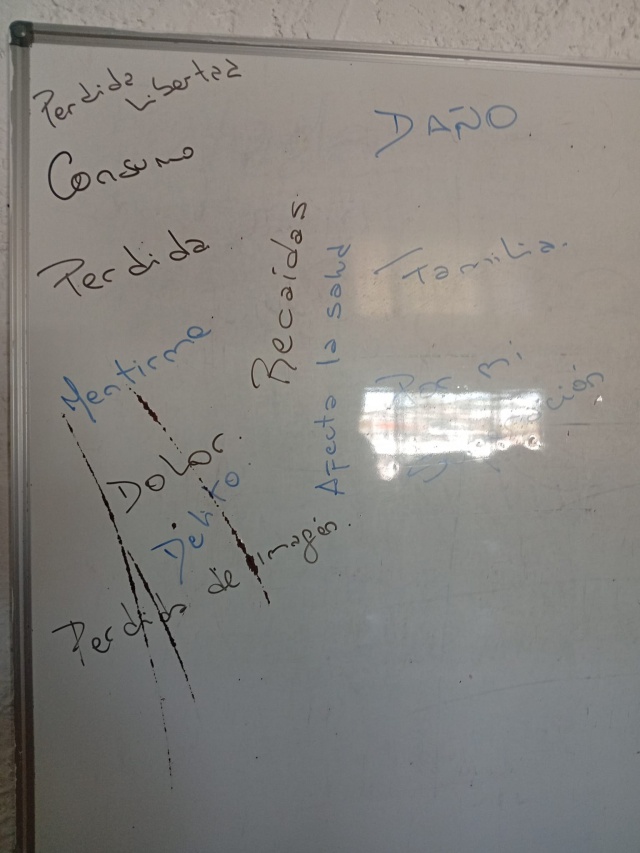 Perdida
Libertad
Consumo
Perdida
Mentirme
Dolor.
Delito
Perdida de imagen.
Recaídas
Afecta la salud
DAÑO
Familia.
Por mi